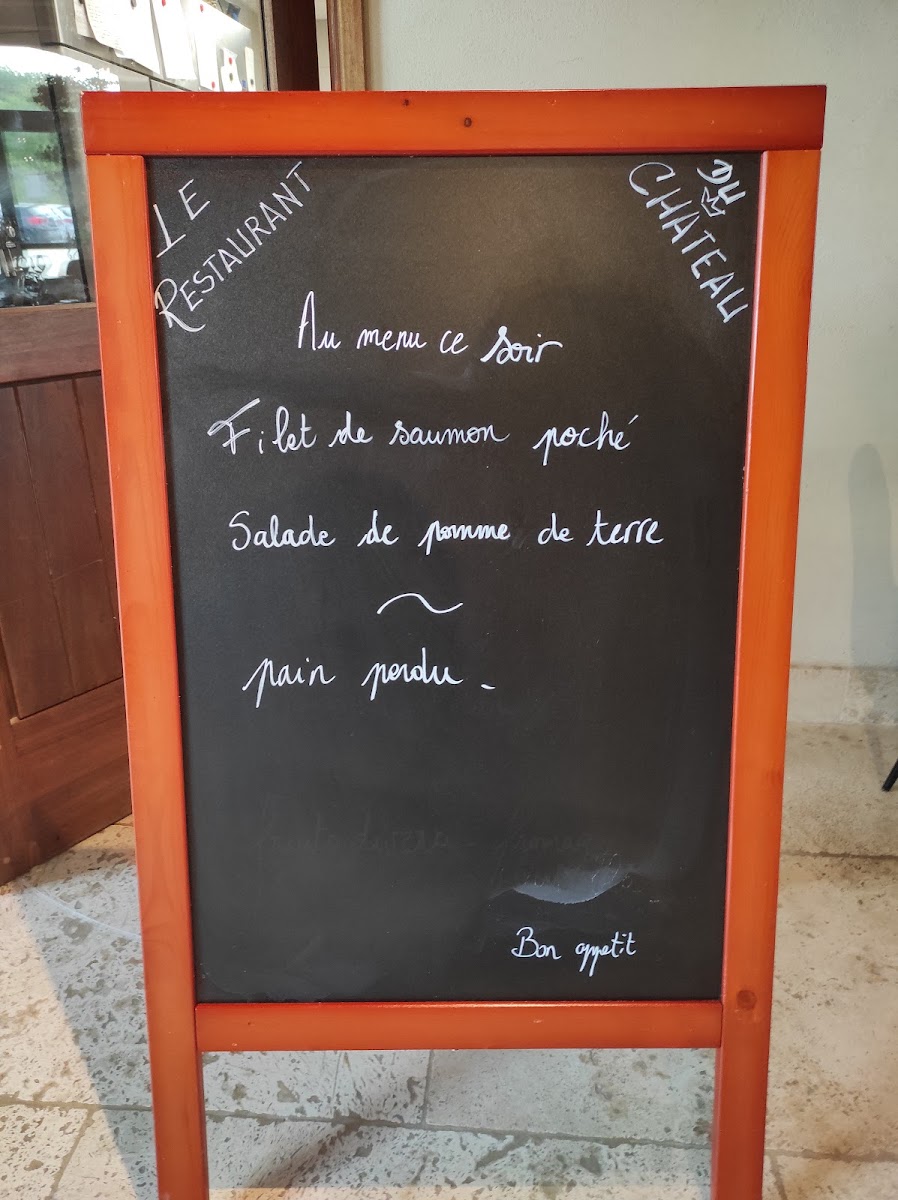 LE
RESTAURANT
DU
CHATEAU
Au menu ce soir
Filet de saumon poché
Salade de pomme de terre
~
pain perdu -
Bon appetit